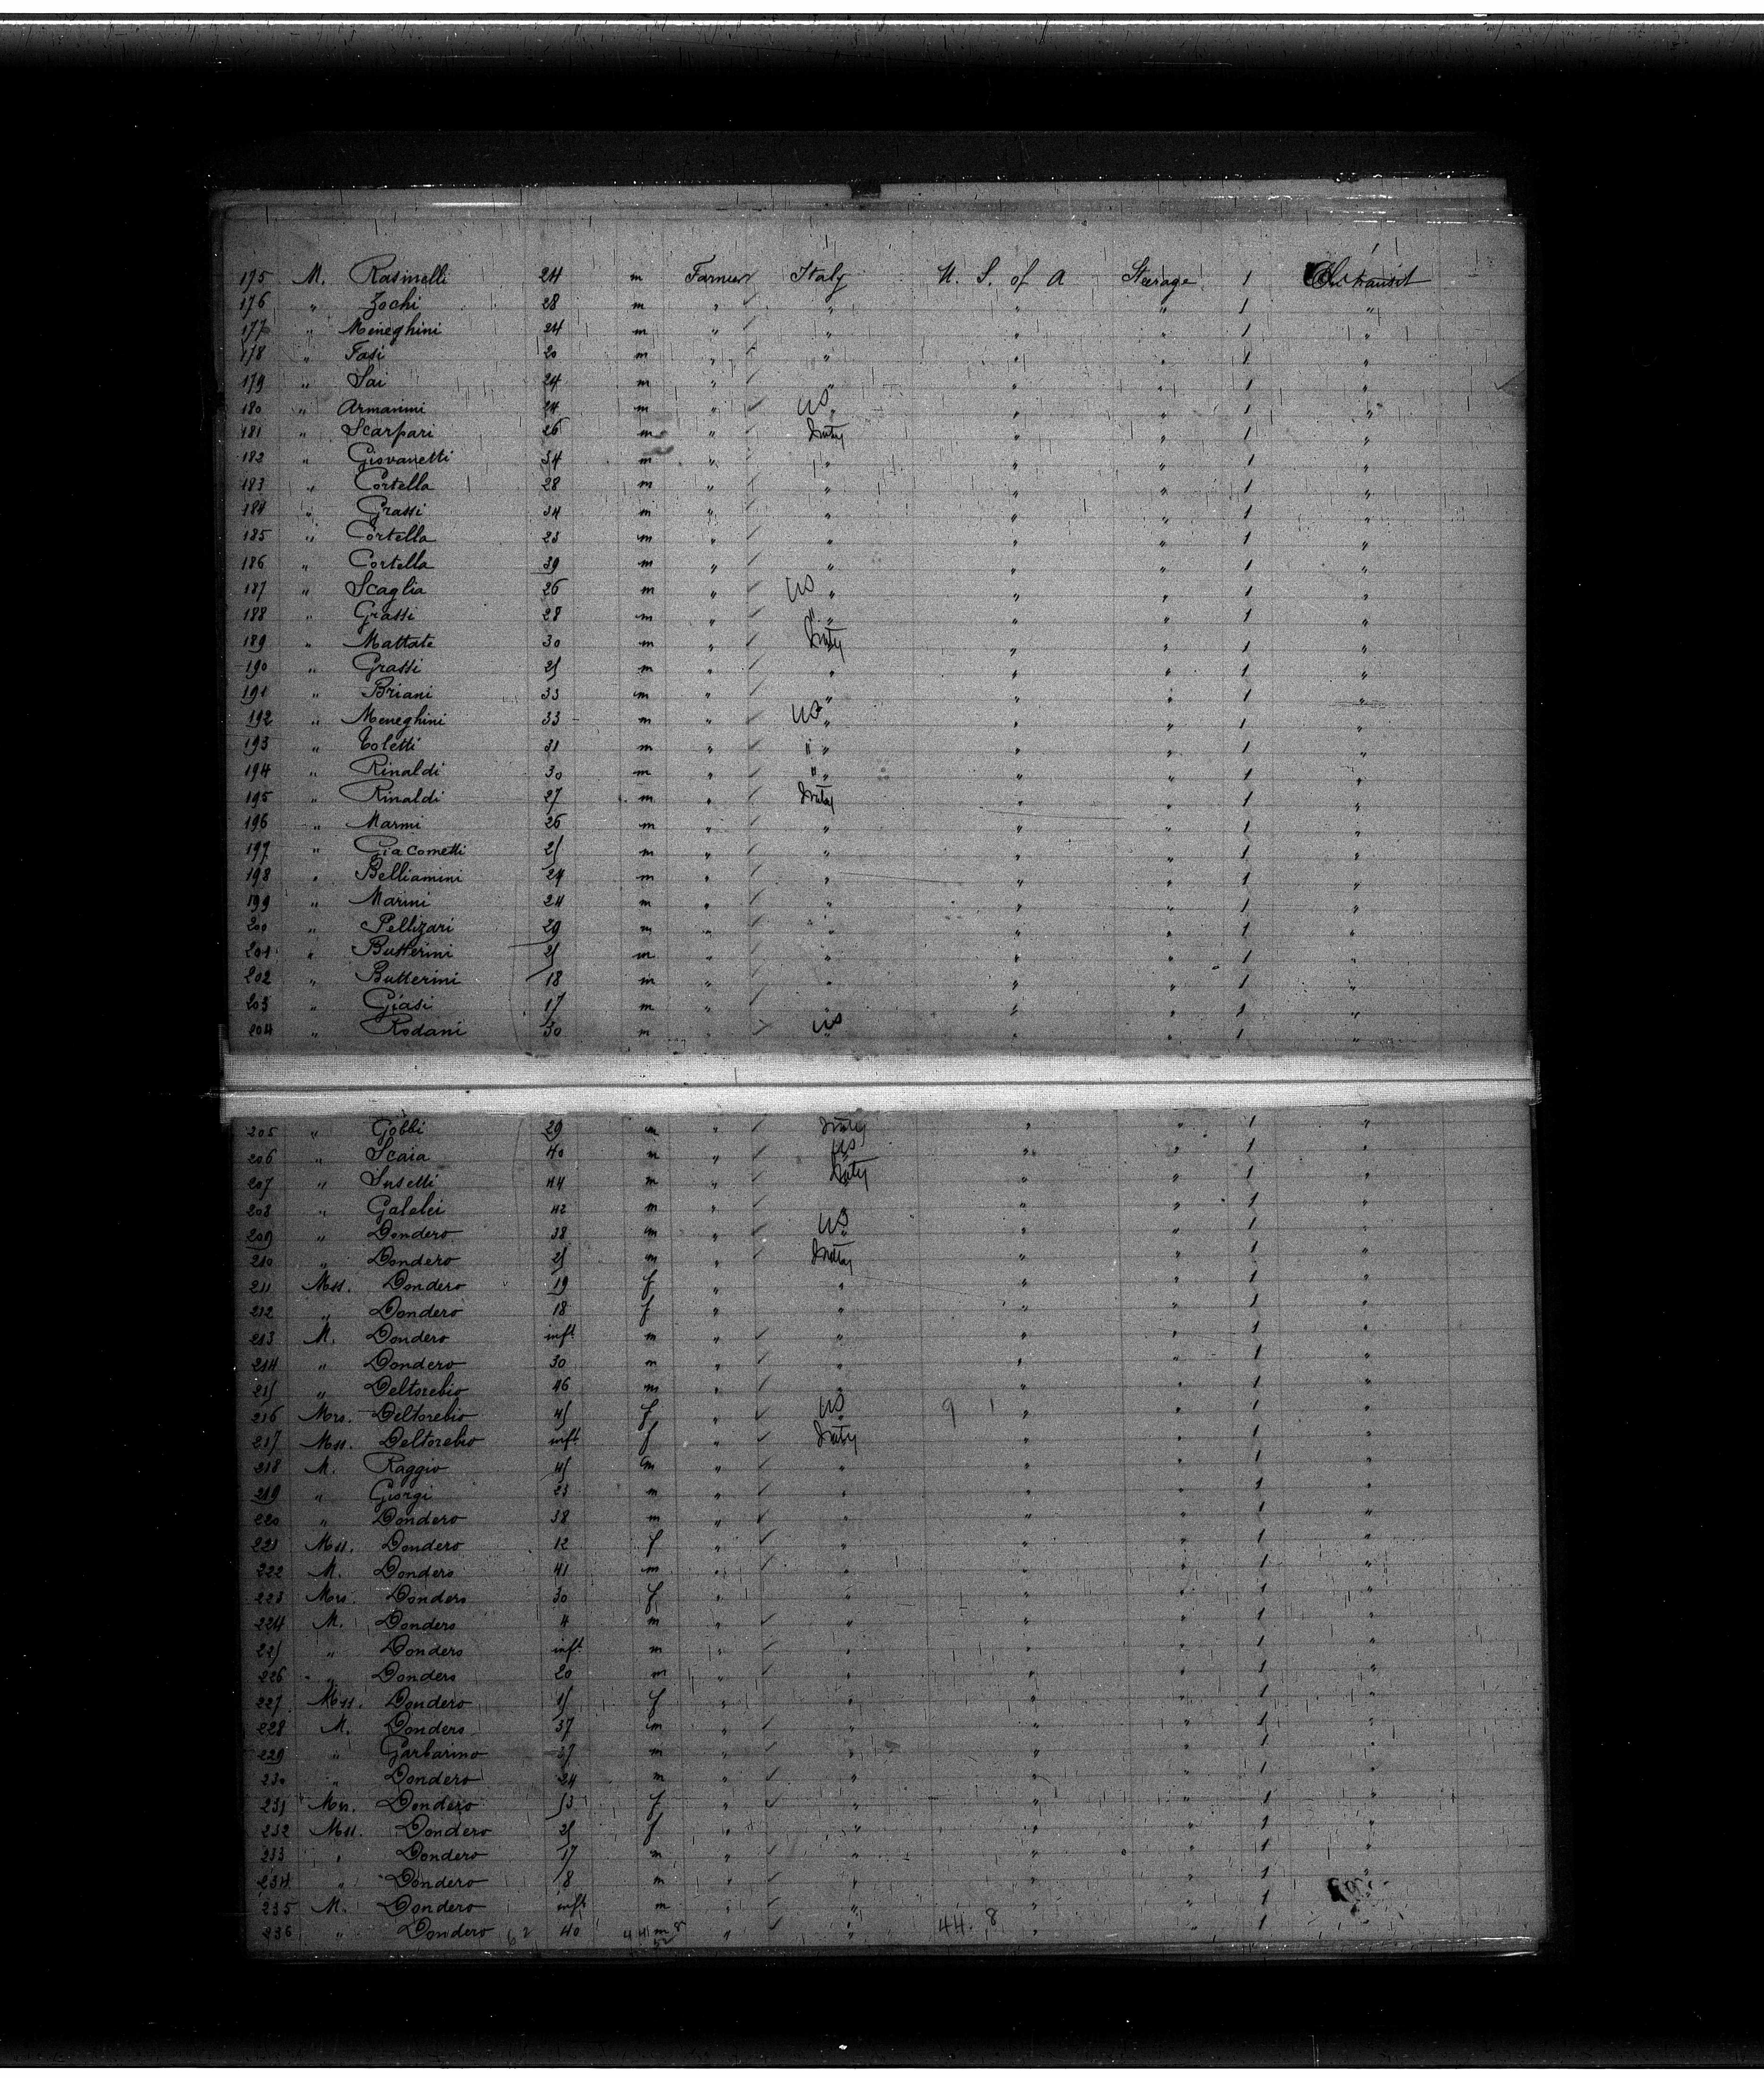 175 M. Rasinelli 24 m Farmer Italy U. S. of A Steerage 1 In transit
176 " Zochi 28 m " " " " 1 "
177 " Meneghini 24 m " " " " 1 "
178 " Fasi 20 m " " " " 1 "
179 " Sai 24 m " " " " 1 "
180 " Armanini 24 m " US " " " 1 "
181 " Scarpari 26 m " Italy " " 1 "
182 " Giovanetti 34 m " " " " 1 "
183 " Cortella 28 m " " " " 1 "
184 " Grassi 34 m " " " " 1 "
185 " Cortella 23 m " " " " 1 "
186 " Cortella 39 m " " " " 1 "
187 " Scaglia 26 m " US " " " 1 "
188 " Grassi 28 m " " " " " 1 "
189 " Mattate 30 m " Italy " " 1 "
190 " Grassi 25 m " " " " 1 "
191 " Briani 33 m " " " " 1 "
192 " Meneghini 33 m " US " " " 1 "
193 " Coletti 31 m " " " " " 1 "
194 " Rinaldi 30 m " " " " " 1 "
195 " Rinaldi 27 m " Italy " " 1 "
196 " Marmi 26 m " " " " 1 "
197 " Giacometti 25 m " " " " 1 "
198 " Belliamini 24 m " " " " 1 "
199 " Marini 24 m " " " " 1 "
200 " Pellizari 29 m " " " " 1 "
201 " Butterini 25 m " " " " 1 "
202 " Butterini 18 m " " " " 1 "
203 " Giasi 17 m " " " " 1 "
204 " Rodani 30 m " US " " " 1 "
205 " Gobbi 29 m " Italy " " 1 "
206 " Scaia 40 m " US " " 1 "
207 " Susetti 44 m " Italy " " 1 "
208 " Galelei 42 m " " " 1 "
209 " Dondero 38 m " US " " " 1 "
210 " Dondero 25 m " Italy " " 1 "
211 Mss. Dondero 19 f " " " " 1 "
212 " Dondero 18 f " " " " 1 "
213 M. Dondero inft m " " " " 1 "
214 " Dondero 30 m " " " " 1 "
215 " Deltorebio 46 m " " " " 1 "
216 Mrs. Deltorebio 45 f " US 9 1 " " 1 "
217 Mss. Deltorebio inft f " Italy " " 1 "
218 M. Raggio 45 m " " " " 1 "
219 " Giorgi 23 m " " " " 1 "
220 " Dondero 38 m " " " " 1 "
221 Mss. Dondero 12 f " " " " 1 "
222 M. Dondero 41 m " " " " 1 "
223 Mrs. Dondero 30 f " " " " 1 "
224 M. Dondero 4 m " " " " 1 "
225 " Dondero inft m " " " " 1 "
226 " Dondero 20 m " " " " 1 "
227 Mss. Dondero 15 f " " " " 1 "
228 M. Dondero 37 m " " " " 1 "
229 " Garbarino 37 m " " " " 1 "
230 " Dondero 24 m " " " " 1 "
231 Mrs. Dondero 53 f " " " " 1 "
232 Mss. Dondero 25 f " " " " 1 "
233 " Dondero 17 m " " " " 1 "
234 " Dondero 18 m " " " " 1 "
235 M. Dondero inft m " " " " 1
236 " Dondero 62 40 44 m 8 " " 44. 8 " " 1